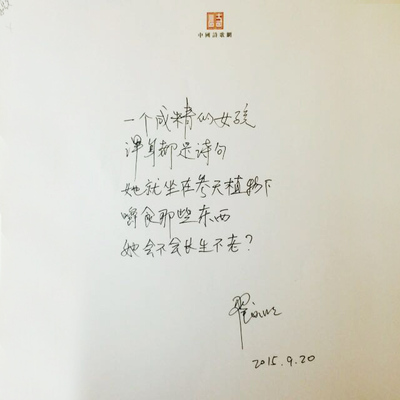 中國詩歌網
一个成精的女孩
浑身都是诗句
她就坐在参天植物下
嚼食那些东西
她会不会长生不老？
翟永明
2015.9.20